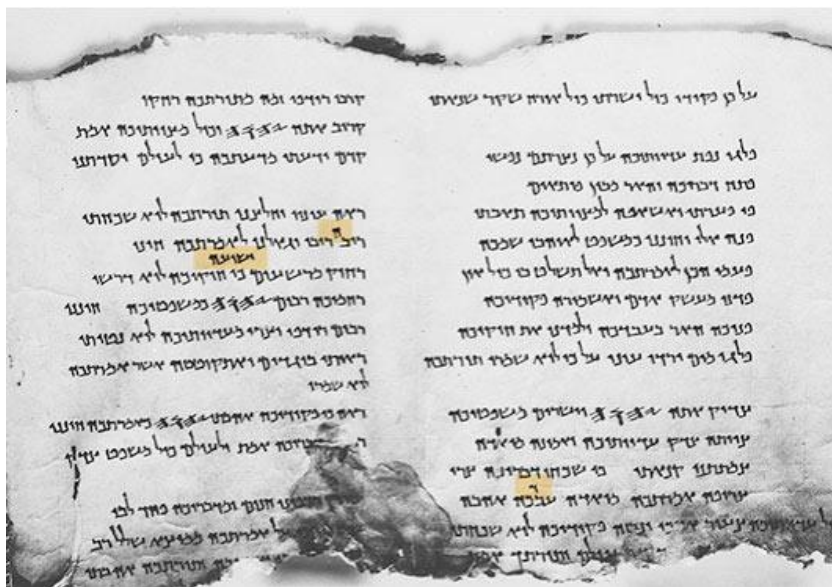 על כן פקודי כול ישרתי כול אורח שקר שנאתי
פלגי נפת עדוותיכה על כן נצרתם נפשי
פתח דבריכה והאר מבין פתיאים
פי פערתי ואשאפה למצוותיכה תאבתי
פנה אלי וחונני כמשפט לאוהבי שמכה
פעמי הכן לאמרתכה ואל תשלט בי כול און
פדני מעשק אדם ואשמורה פקודיכה
פניכה האר בעבדכה ולמדני את חוקיכה
פלגי מים ירדו עיני על כי לוא שמרו תורתכה
צדיק אתה 𐤉𐤄𐤅𐤄 וישרים משפטיכה
צויתה צדק עדוותיכה ואמונה מואדה
צמתתני קנאתי כי שכחו דבריכה צרי
ד
צרופה אמרתכה מואדה עבכה אהבה
צעיר אנוכי ונבזה פקודיכה לוא שכחתי
לעולם ותורתך אמת
קרבו רודפי זמה מתורתכה רחקו
קרוב אתה 𐤉𐤄𐤅𐤄 וכול מצוותיכה אמת
קדם ידעתי מדעתכה כי לעולם יסדתני
ראה עוני וחלצני תורתכה לוא שכחתי
ה
ריב ריבי וגאלני לאמרתכה חיני
ישועה
רחוק מרשעים כי חוקיכה לוא דרשו
רחמיכה רבים 𐤉𐤄𐤅𐤄 כמשפטיכה חונני
רבים רודפי וצרי מעדוותיכה לוא נטיתי
ראיתי בוגדים ואתקוטטה אשר אמרתכה
לוא שמרו
ראה כי פקודיכה אהבתי 𐤉𐤄𐤅𐤄 כאמרתכה חונני
אמת ולעולם כול משפט צדק
חנם ומדבריכה פחד לבי
על אמרתכה ממוצא שלל רב
ותורתכה אהבתי